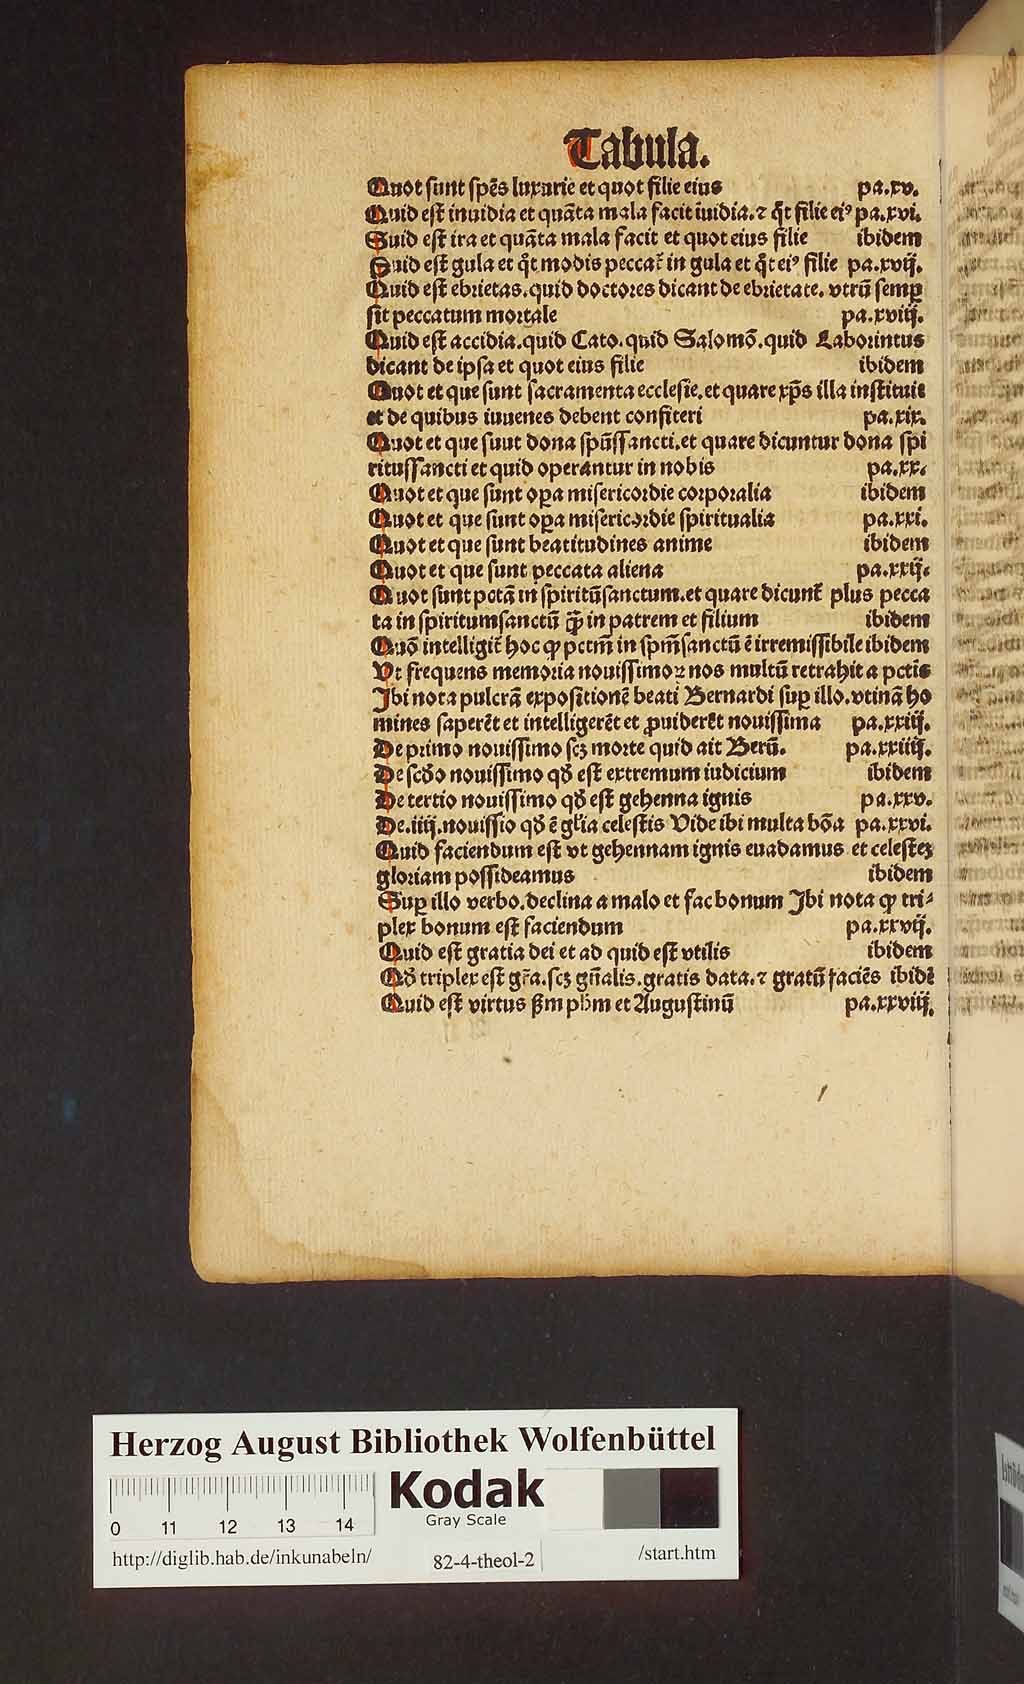 Tabula.
Quot sunt spēs luxurie et quot filie eius pa.xv.
Quid est inuidia et quāta mala facit īuidia.⁊ q̄t filie eiꝰ pa.xvi.
Suid est ira et quāta mala facit et quot eius filie ibidem
Suid est gula et q̄t modis peccat̄ in gula et q̄t eiꝰ filie pa.xvij.
Quid est ebrietas.quid doctores dicant de ebrietate. vtrū semꝑ
sit peccatum mortale pa.xviij.
Quid est accidia.quid Cato.quid Salomō.quid Laborintus
dicant de ipsa et quot eius filie ibidem
Quot et que sunt sacramenta ecclesie.et quare xp̄s illa instituit
et de quibus iuuenes debent confiteri pa.xix.
Quot et que suut dona spūssancti.et quare dicuntur dona spi
ritussancti et quid operantur in nobis pa.xx.
Quot et que sunt oꝑa misericordie corporalia ibidem
Quot et que sunt oꝑa misericordie spiritualia pa.xxi.
Quot et que sunt beatitudines anime ibidem
Quot et que sunt peccata aliena pa.xxij.
Quot sunt pctā in spiritūsanctum.et quare dicunt̄ plus pecca
ta in spiritumsanctū ꝙ̄ in patrem et filium ibidem
Quō intelligit̄ hoc ꝙ pctm̄ in spm̄sanctū ē irremissibile ibidem
Vt frequens memoria nouissimoꝝ nos multū retrahit a pctīs
Ibi nota pulcrā expositionē beati Bernardi suꝑ illo.vtinā ho
mines saperēt et intelligerēt et ꝓuiderēt nouissima pa.xxiij.
De primo nouissimo scꝫ morte quid ait Berū. pa.xxiiij.
De scd̄o nouissimo qd̄ est extremum iudicium ibidem
De tertio nouissimo qd̄ est gehenna ignis pa.xxv.
De.iiij.nouissio qd̄ ē gl̄ia celestis Vide ibi multa bōa pa.xxvi.
Quid faciendum est vt gehennam ignis euadamus et celesteꝫ
gloriam possideamus ibidem
Suꝑ illo verbo.declina a malo et fac bonum Ibi nota ꝙ tri⸗
plex bonum est faciendum pa.xxvij.
Quid est gratia dei et ad quid est vtilis ibidem
Qd̄ triplex est gr̄a.scꝫ gn̄alis.gratis data.⁊ gratū faciēs ibidē
Quid est virtus ẜm ph̄m et Augustinū pa.xxviij.
Herzog August Bibliothek Wolfenbüttel
Kodak
Gray Scale
0 11 12 13 14
http://diglib.hab.de/inkunabeln/ 82-4-theol-2 /start.htm